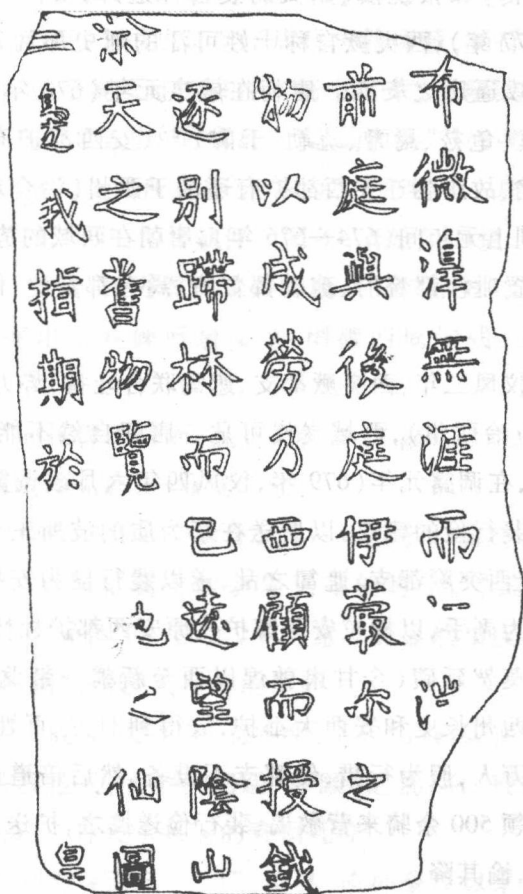 微湟無涯而一
前庭與後庭伊叢尒之
物以成勞乃西顧而授鉞
逐別蹛林而已遠望陰山
大之舊物覽也之仙圖
是我指期於皇